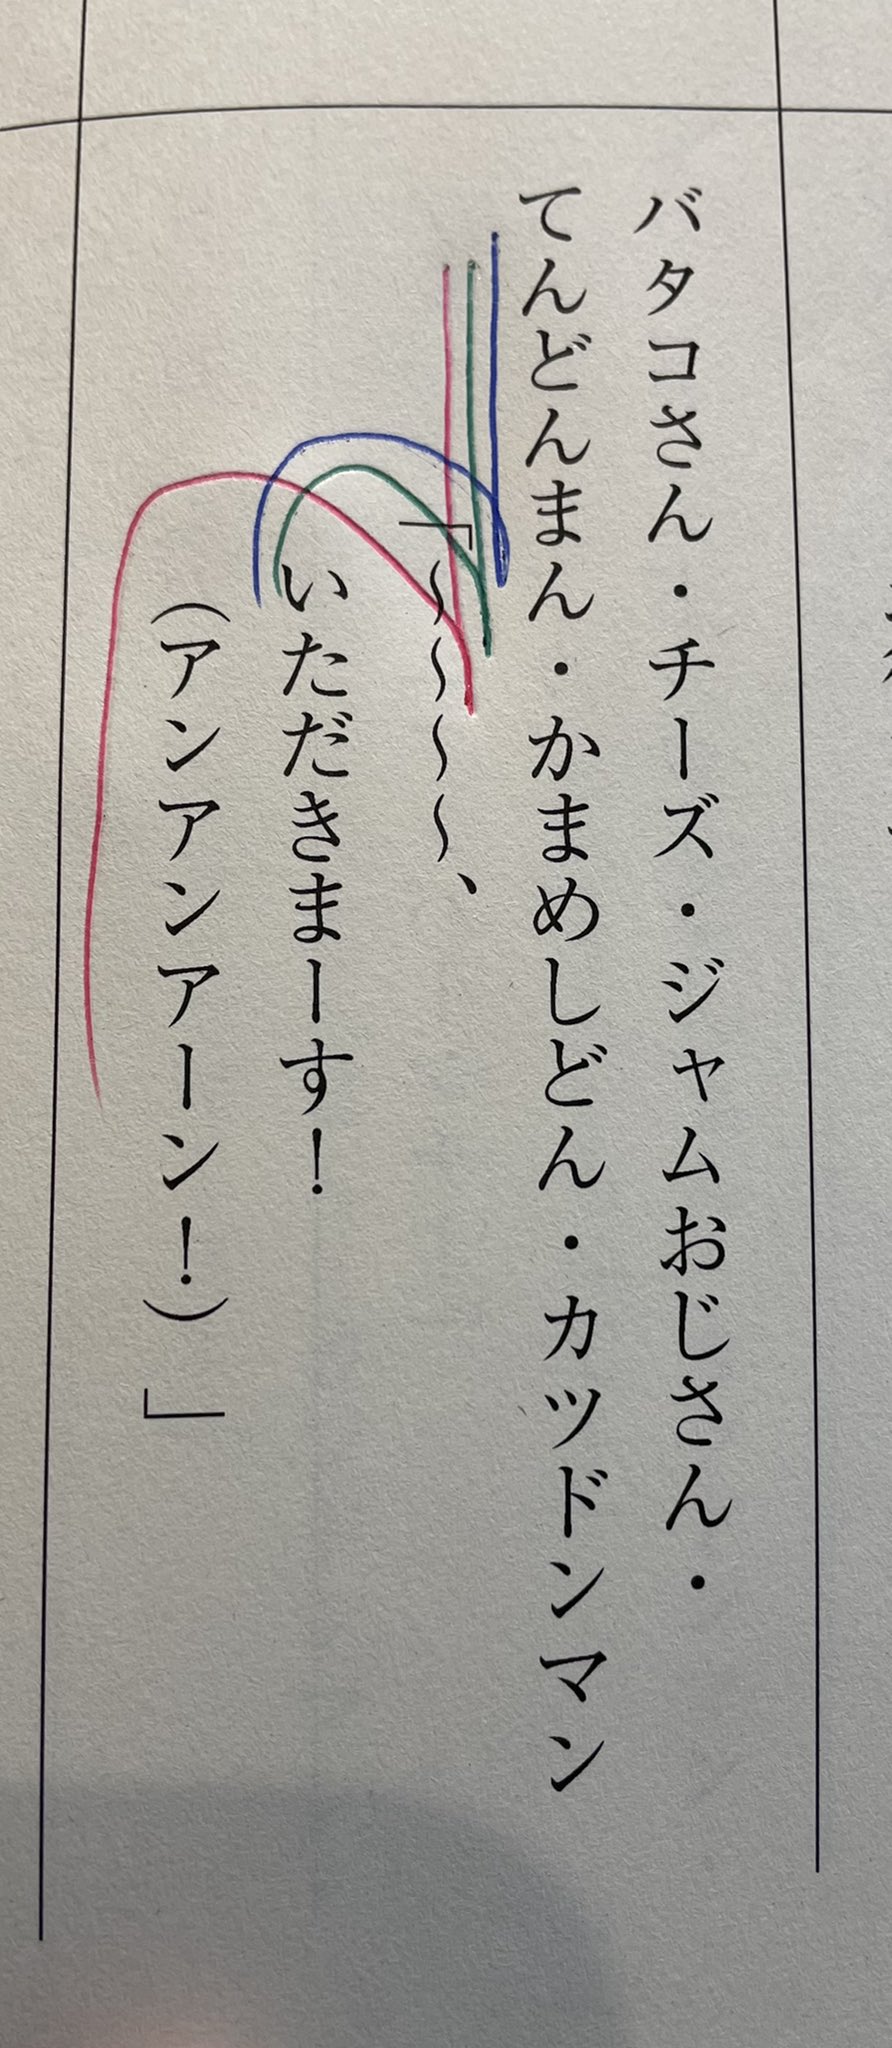 バタコさん・チーズ・ジャムおじさん・
てんどんまん・かまめしどん・カツドンマン
「～～～～、
いただきまーす！
（アンアンアーン！）」